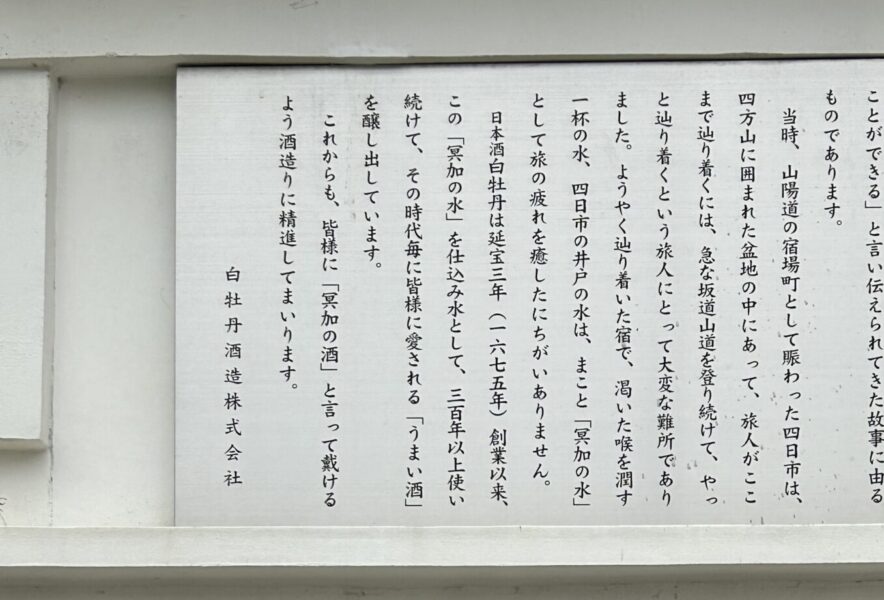 ことができる」と言い伝えられてきた故事に由る
ものであります。
当時、山陽道の宿場町として賑わった四日市は、
四方山に囲まれた盆地の中にあって、旅人がここ
まで辿り着くには、急な坂道山道を登り続けて、やっ
と辿り着くという旅人にとって大変な難所であり
ました。ようやく辿り着いた宿で、渇いた喉を潤す
一杯の水、四日市の井戸の水は、まこと「冥加の水」
として旅の疲れを癒したにちがいありません。
日本酒白牡丹は延宝三年（一六七五年）創業以来、
この「冥加の水」を仕込み水として、三百年以上使い
続けて、その時代毎に皆様に愛される「うまい酒」
を醸し出しています。
これからも、皆様に「冥加の酒」と言って戴ける
よう酒造りに精進してまいります。
白牡丹酒造株式会社